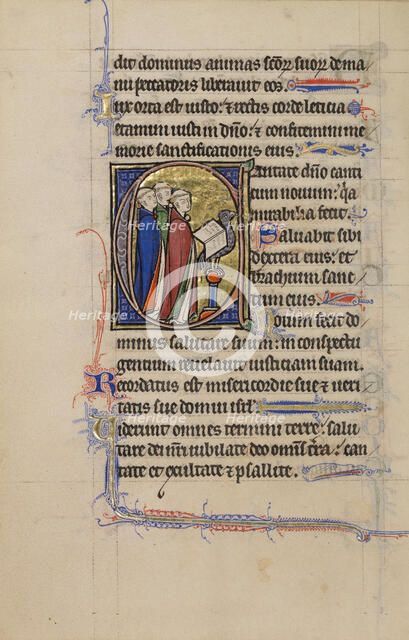 dit dominus animas scoꝝ suoꝝ de ma
nu peccatoris liberavit eos.
Lux orta est iusto: et rectis corde leticia
Letamini iusti in dno: et confitemini me
morie sanctificationis eius.
Cantate dno canti
cum novum: qa
mirabilia fecit.
Salvabit sibi
dextera eius: et
brachium sanc
tum eius.
Notum fecit do
minus salutare suum: in conspectu
gentium revelavit iusticiam suam.
Recordatus est misericordie sue et veri
tatis sue domui isrl.
Viderunt omnes termini terre: salu
tare dei nri iubilate deo omnis tra: can
tate et exultate et psallite.
Heritage
Images
Heritage
Images
Heritage
Images
Heritage
Heritage